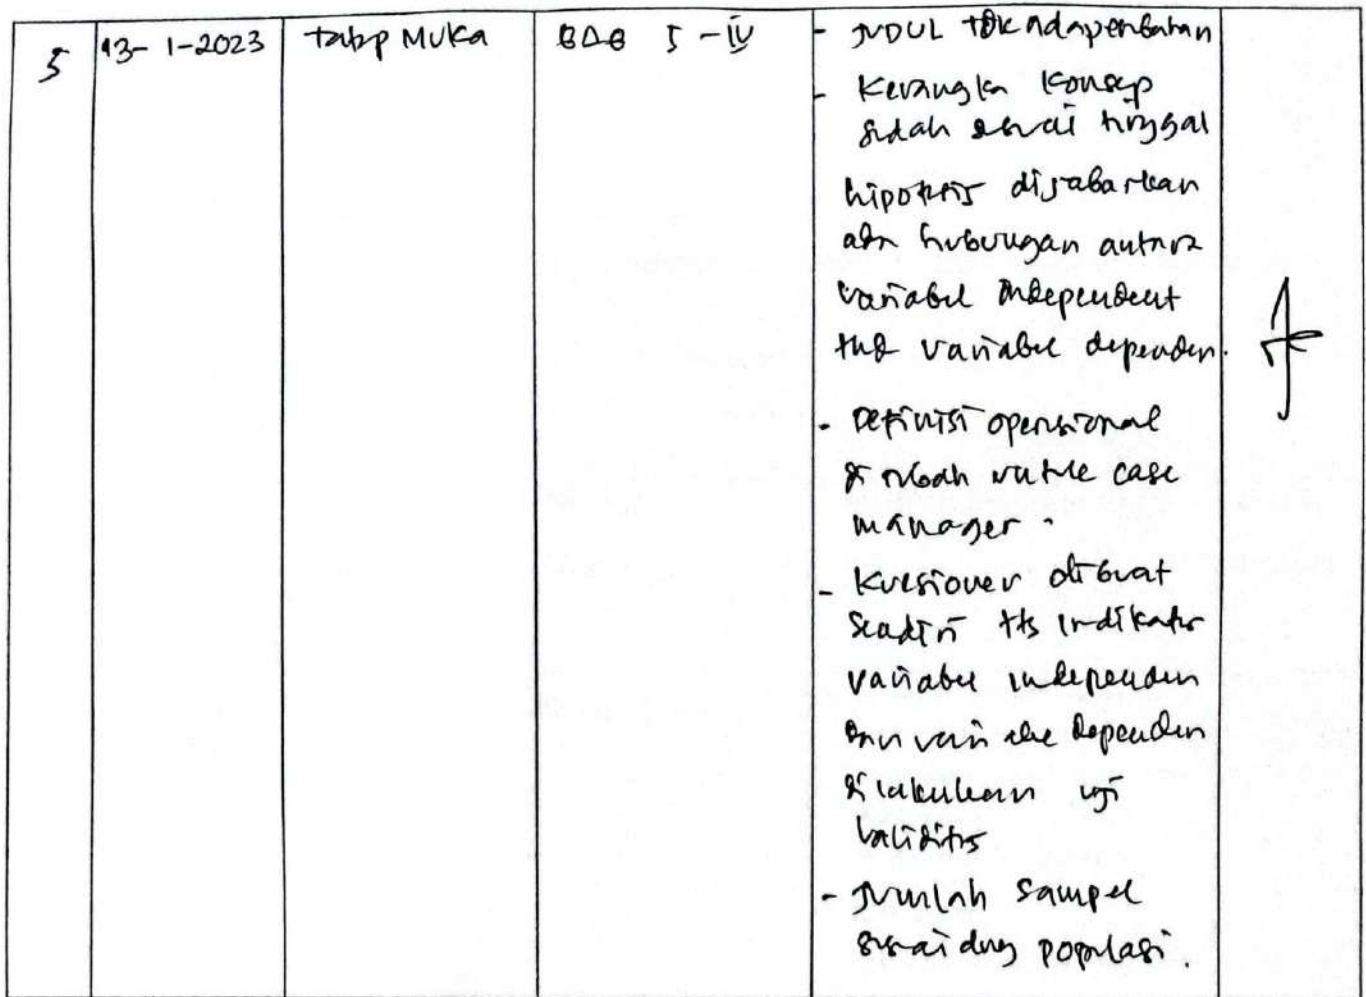 5
13-1-2023
tatap Muka
BAB I - IV
- JUDUL tdk ada perubahan
- Kerangka Konsep
sudah sesuai tinggal
hipotesis dijabarkan
ada hubungan antara
variabel independent
thd variabel dependen.
- Definisi operasional
di rubah untuk case
manager.
- Kuesioner dibuat
sendiri ttg indikator
variabel independen
dan variabel dependen
dilakukan uji
validitas
- Jumlah sampel
sesuai dng populasi.